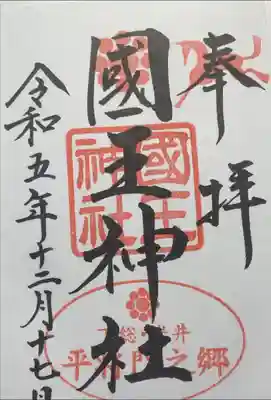 奉拝
國王神社
令和五年十二月十七日
國王神社
平将門之郷